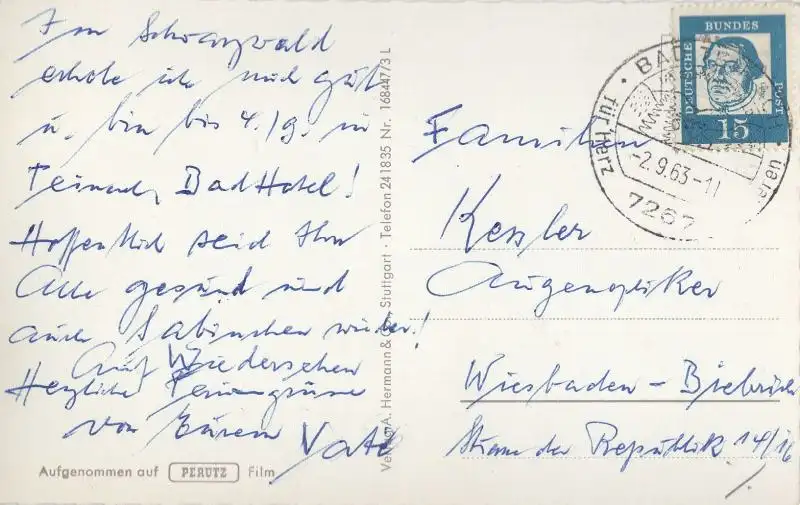 Im Schwarzwald
erhole ich mich gut
u. bin bis 4./9. in
Teinach, Bad Hotel!
Hoffentlich seid Ihr
Alle gesund und
auch Sabinchen wieder!
Auf Wiedersehen
Herzliche Feriengrüsse
von Eurem Vater
Aufgenommen auf PERUTZ Film
Verlag A. Hermann & Co., Stuttgart · Telefon 241835 Nr. 168447/3 L
DEUTSCHE BUNDESPOST
15
BAD
für Herz
-2.9.63-11
7267
Familien
Kessler
Augenoptiker
Wiesbaden - Biebrich
Strasse der Republik 14/16